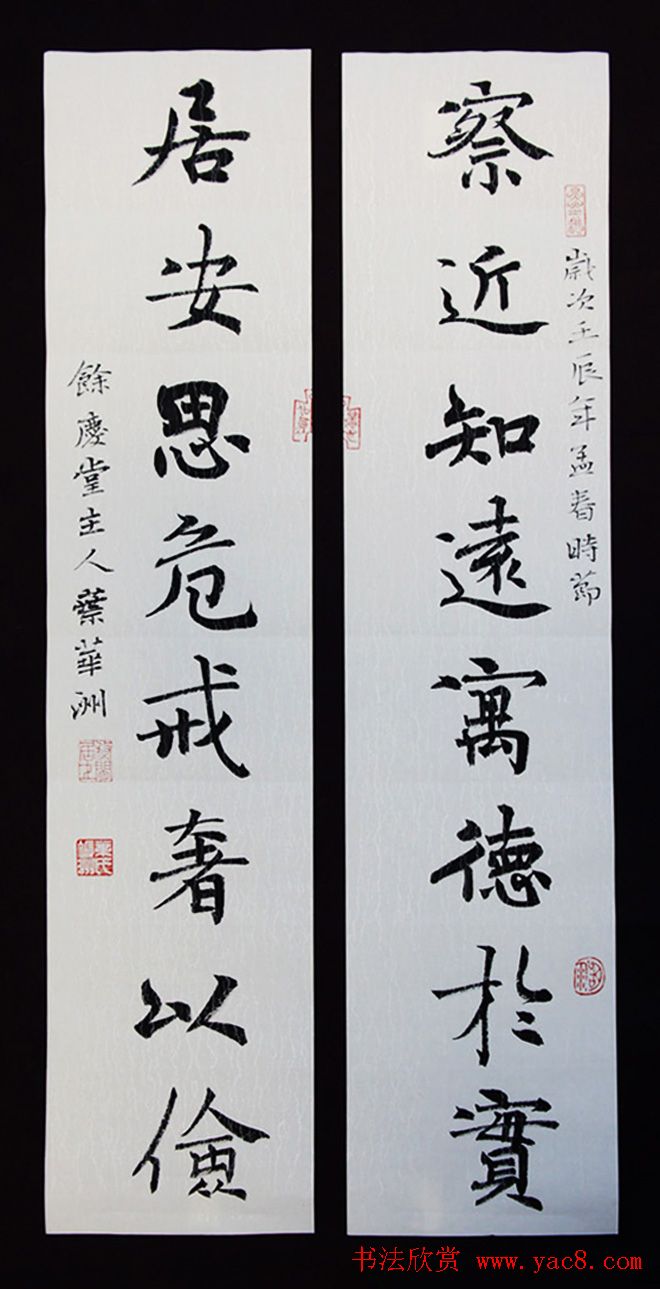 歲次壬辰年孟春時節
察近知遠寓德於實
居安思危戒奢以儉
餘慶堂主人蔡華洲
书法欣赏 www.yac8.com